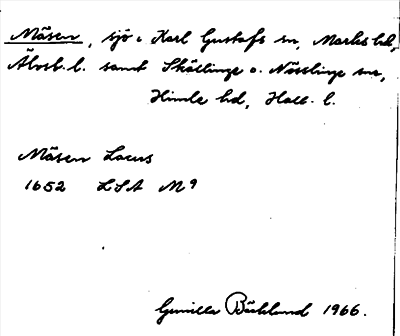 Mäsen, sjö i Karl Gustafs sn, Marks hd,
Älvsb. l. samt Skällinge o. Nösslinge snr,
Himle hd, Hall. l.
Mäsen Lacus
1652 LSA M9
Gunilla Bäcklund 1966.